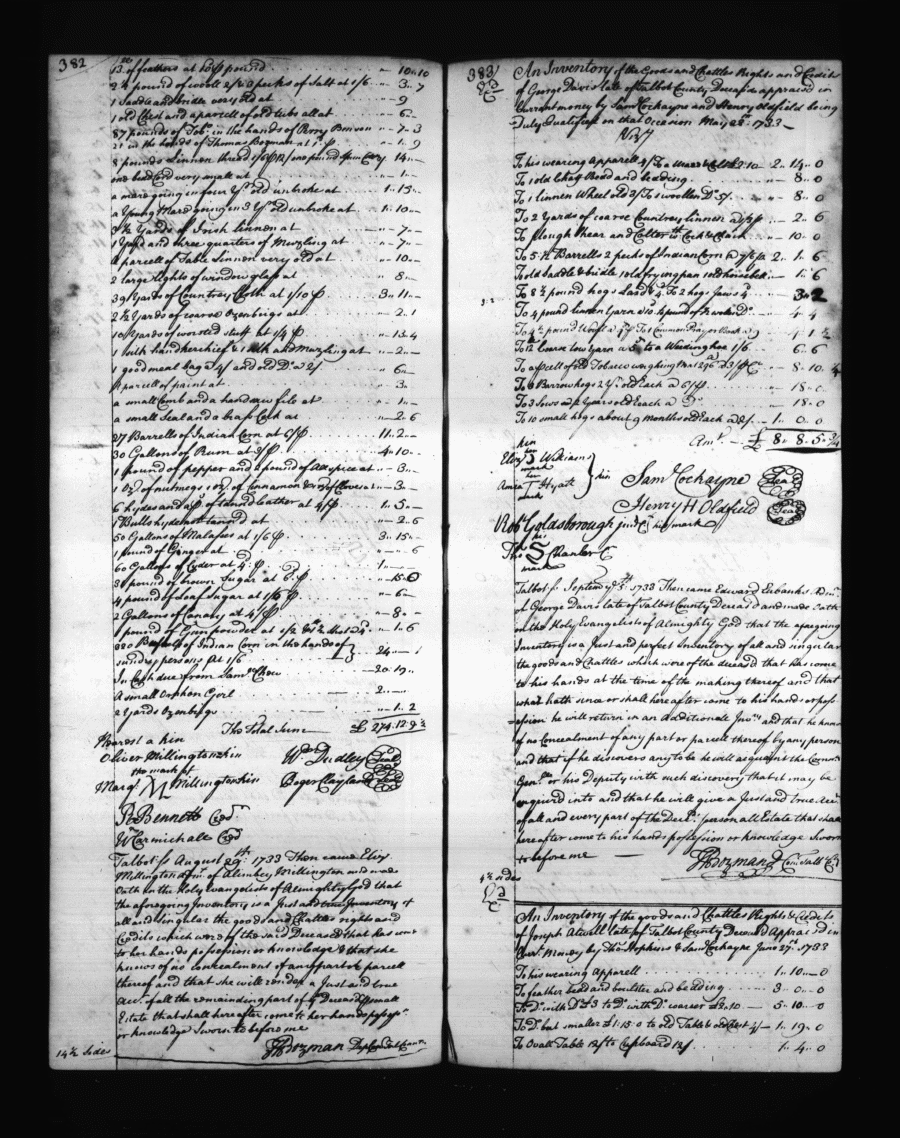 382
13 of feathers at p pound " 10 " 10
2 ½ pound of wooll 2/ 3 pecks of Salt at 1/6 " 3 " 7
1 Saddle and bridle very old at " 9
1 old Chest and a parcell of old tubs all at " 6 "
87 pounds of Tobo in the hands of Perry Benson " 7 " 3
21 in the hands of Thomas Bozman at 1d p " 1 " 9
8 pounds Linnen thread 14 "
one bed Cord very small at " 1 "
a mare going in four yrs old unbroke at 1 " 15 "
a Young Mare going in 3 yrs old unbroke at 1 " 10 "
3 ½ Yards of Irish Linnen at " 7 "
1 Yard and three quarters of Muzling at " 7 "
a parcell of Table Linnen very old at " 10 "
2 large lights of window glass at " 8 "
39 Yards of Countrey Cloth at 1/10 p 3 " 11 "
2 ½ Yards of coarse Ozenbrigs at " 2 " 1
10 Yards of worsted stuff at 1/4 p " 13 " 4
1 silk handkerchief & 1 silk and Muzling at " 2 "
1 good meal bag 4/ and old Do 2/ " 6 "
A parcell of paint at " 3 "
a small Comb and a handsaw file at " 1 "
a small Seal and a brass Cock at " 2 " 6
37 Barrells of Indian Corn at 6/ p 11 " 2 "
30 Gallons of Rum at 3/ p 4 " 10 "
1 pound of pepper and a pound of Allspice at " 3 "
1 oz of nutmegs 1 oz of Cinnamon & Cloves at " 3 "
6 hydes and a of tanned leather at 4/ p 1 " 5 "
1 Bulls hyde not tannd at " 2 " 6
50 Gallons of Malasses at 1/6 p 3 " 15 "
1 pound of Ginger at " " 6
60 Gallons of Cyder at 4d p 1 "
pound of brown Sugar at 6d p " 15 " 0
4 pound of loaf Sugar at 1/6 p " 6 "
2 Gallons of Canary at 4/ p " 8 "
1 pound of Gunpowder at 1/2 " 1 " 6
320 Barrells of Indian Corn in the hands of
sundry persons at 1/6 24 "
In Cash due from Saml Chew 20 " 19 "
A small Orphan Girl 2 "
2 Yards Ozenbrigs " 1 " 2
The Total Sume £ 274 " 12 " 9 ½
Nearest a kin
Oliver Millington kin Wm Dudley Seal
the mark of
Margt M Millington kin Roger Clayland Seal
R Bennett Credr
Wm Carmichale Credr
Talbot ss August 29th 1733 Then came Eliz
Millington Admx of Allimbey Millington and made
Oath on the Holy Evangelists of Almighty God that
the aforegoing Inventory is a Just and true Inventory of
all and singular the goods and Chattles rights and
Credits which were of the said Deceased that has come
to her hands possession or knowledge & that she
knows of no concealment of any part or parcell
thereof and that she will render a Just and true
Acct of all the remaining part of the Deceaseds small
Estate that shall hereafter come to her hands possn
or knowledge Sworn to before me
JBozman Depty Com Talbt County
14 ½ sides
383
An Inventory of the Goods and Chattles Rights and Credits
of George Davis late of Talbot County Deceased appraised in
Current money by Saml Cockayne and Henry Oldfield being
Duly Qualified on that Occasion May 25th 1733
Vizt
To his wearing Apparell 4/ To a Mare & Colt £2:10 2 " 14 " 0
To 1 old Chaff Bedd and bedding " 8 " 0
To 1 linnen Wheel old 3/ To 1 woollen Do 5/ " 8 " 0
To 2 Yards of coarse Countrey linnen a 1/3 p " 2 " 6
To plough Shear and Colter to Cock & Clack " 10 " 0
To 5 ½ Barrells 2 pecks of Indian Corn a 7/6 p 2 " 1 " 6
To old saddle & bridle 1 old frying pan 1 old " 1 " 6
To 8 ½ pound hogs Lard 4d To 2 hogs Jaws 4d " 3 " 2
To 4 pound linnen Yarn " 4 " 4
To 4 ½ pound Wool a 7d p To 1 Common Prayer Book 2/ " 4 " 1 ½
To 12 lb Coarse tow Yarn a 5d to a Weeding hoe 1/6 " 6 " 6
To a pcell of old Tobacco weighing Nt 296 a 8 " 10 "
To 3 Barrow hogs 2 yrs old Each a 6/ p " 18 " 0
To 3 Sows 2 Years old Each a Do " 18 " 0
To 10 small hogs about 9 months old Each a 2/ 1 " 0 " 0
Amt £ 8 " 8 " 5 " ¾
kin
her
Eliz S Wilkinson
mark
her
T Hyate kin
mark
Saml Cockayne Seal
Henry H Oldfield Seal
his mark
Robt Goldsborough junr Cr
his
Thos S Chanler Cr
mark
Talbot ss Septem ye 3d 1733 Then came Edward Eubanks Admr
of George Davis late of Talbot County Deceasd and made Oath
on the Holy Evangelists of Almighty God that the afsegoing
Inventory is a Just and perfect Inventory of all and singular
the goods and Chattles which were of the deceasd that has come
to his hands at the time of the making thereof and that
what hath since or shall hereafter come to his hands or poss
=ession he will return in an additionale Invry and that he knows
of no Concealment of any part or parcell thereof by any person
and that if he discovers any to be he will acquaint the Comsy
Genll or his Deputy with such discovery that it may be
enquired into and that he will give a Just and true Acct
of all and every part of the Decds personall Estate that shall
hereafter come to his hands possession or knowledge Sworn
to before me JBozman D Com Talbt Cty
4 ½ sides
An Inventory of the goods and Chattles Rights & Credits
of Joseph Atwell late of Talbot County Deceasd Appraised in
Curt Money by Thos Hopkins & Saml Cockayne June 27th 1733
To his wearing Apparell 1 " 10 " 0
To feather bed and boulster and bedding 3 " 0 " 0
To Do with Do £3 to Do with Do coarser £2:10 5 " 10 " 0
To Do but smaller £1:15:0 to old Table & old Chest 4/ 1 " 19 " 0
To Ovall Table 12/ to Cupboard 12/ 1 " 4 " 0